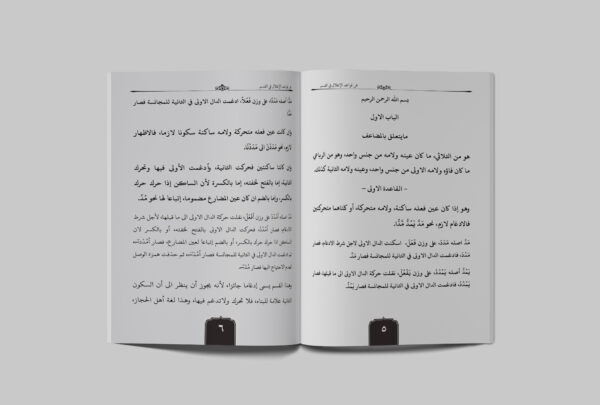 في قواعد الإعلال في القسم
بسم الله الرحمن الرحيم
الباب الاول
مايتعلق بالمضاعف
هو من الثلاثي، ما كان عينه ولامه من جنس واحد، وهو من الرباعي
ما كان فاؤه ولامه الاولى من جنس واحد، وعينه ولامه الثانية كذلك
- القاعدة الاولى -
وهو إذا كان عين فعله ساكنة، ولامه متحركة، أو كلتاهما متحركتين
فالادغام لازم، نحو مَدَّ يَمُدُّ مَدًّا.
مَدَّ اصله مَدَدَ، على وزن فَعَلَ، اسكنت الدال الاولى لاجل شرط الادغام فصار
مَدْدَ، فادغمت الدال الاولى في الثانية للمجانسة فصار مَدَّ.
يَمُدُّ أصله يَمْدُدُ، على وزن يَفْعُلُ، نقلت حركة الدال الاولى الى ما قبلها، فصار
يَمُدْدُ، فادغمت الدال الاولى في الثانية للمجانسة فصار يَمُدُّ.
٥
في قواعد الإعلال في القسم
مَدًّا أصله مَدْدًا، على وزن فَعْلاً، ادغمت الدال الاولى في الثانية للمجانسة فصار
مَدًّا
وإن كانت عين فعله متحركة ولامه ساكنة سكونا لازما، فالاظهار
لازم، نحو مَدَدْنَ الى مَدَدْنَا.
وإن كانتا ساكنتين فحركت الثانية، وأدغمت الأولى فيها وتحرك
الثانية، إما بالفتح لخفته، إما بالكسرة لأن الساكن إذا حرك حرك
بالكسر، وإما بالضم إن كان عين المضارع مضموما، إتباعا لها نحو مُدَّ.
مُدَّ اصله أُمْدُدْ، على وزن أُفْعُلْ، نقلت حركة الدال الاولى الى ما قبلها، لاجل شرط
الادغام فصار أُمُدْدْ، فحركت الدال الاولى بالفتح لخفته، أو بالكسر لان
الساكن اذا حرك حرك بالكسر، أو بالضم إتباعا لعين المضارع، فصار
فادغمت الدال الاولى في الثانية للمجانسة فصار ثم حذفت همزة الوصل
لعدم الاحتياج اليها فصار
وهذا القسم يسمى إدغاما جائزا، لأنه يجوز أن ينظر الى أن السكون
الثانية علامة للبناء، فلا تحرك ولاتدغم فيها، وهذا لغة أهل الحجاز،
٦